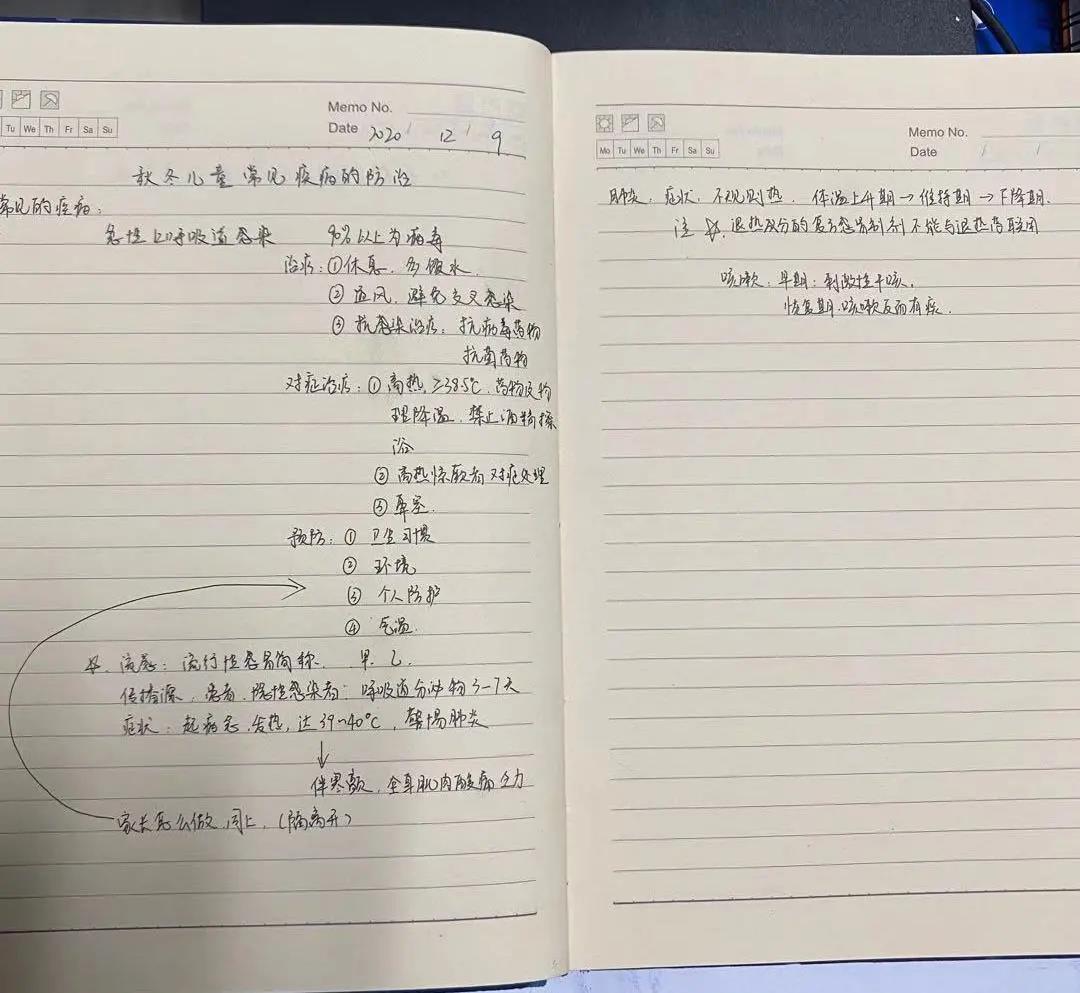 Memo No.
Tu We Th Fr Sa Su
Date 2020 / 12 / 9
秋冬儿童常见疾病的防治
常见的疾病:
急性上呼吸道感染 90%以上为病毒
治疗:①休息、多饮水.
②通风、避免交叉感染
③抗感染治疗:抗病毒药物
抗菌药物
对症治疗:①高热,≥38.5℃,药物及物
理降温,禁止酒精擦
浴
②高热惊厥者对症处理
③鼻塞.
预防:① 卫生习惯
② 环境
③ 个人防护
④ 气温.
流感:流行性感冒简称. 甲.乙.
传播源,患者、隐性感染者:呼吸道分泌物3-7天
症状:起病急、发热,达39~40℃, 肺炎
↓
伴寒颤,全身肌肉酸痛乏力
家长怎么做,同上,(隔离开)
Memo No.
Mo Tu We Th Fr Sa Su
Date / /
肺炎,症状,不规则热. 体温上升期→维持期→下降期.
注☆.退热成分的复方感冒制剂不能与退热药联用
咳嗽.早期:刺激性干咳,
恢复期.咳嗽反而有痰.